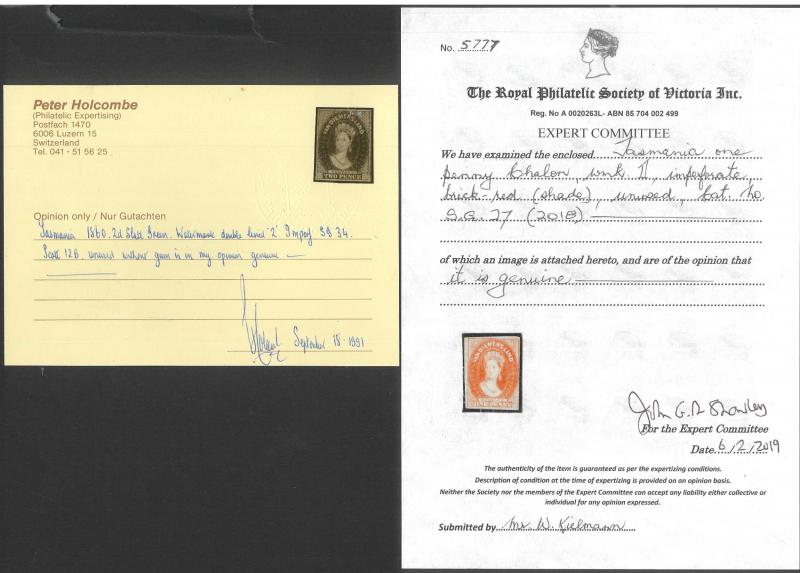 Peter Holcombe
(Philatelic Expertising)
Postfach 1470
6006 Luzern 15
Switzerland
Tel. 041 - 51 56 25
VAN DIEMENS LAND
TWO PENCE
Opinion only / Nur Gutachten
Tasmania 1860. 2d Slate Green. Watermark double lined '2' Imperf SG 34.
Scott 12B, unused without gum is in my opinion genuine
September 18 1991
No. 5777
The Royal Philatelic Society of Victoria Inc.
Reg. No A 0020263L- ABN 85 704 002 499
EXPERT COMMITTEE
We have examined the enclosed Tasmania one
penny Chalon, wmk 1, imperforate
brick-red (shade), unused, Cat no.
S.G. 27 (2018)
of which an image is attached hereto, and are of the opinion that
it is genuine
VAN DIEMENS LAND
ONE PENNY
John G.
For the Expert Committee
Date 6/2/2019
The authenticity of the item is guaranteed as per the expertizing conditions.
Description of condition at the time of expertizing is provided on an opinion basis.
Neither the Society nor the members of the Expert Committee can accept any liability either collective or
individual for any opinion expressed.
Submitted by Mr W. Kielmann